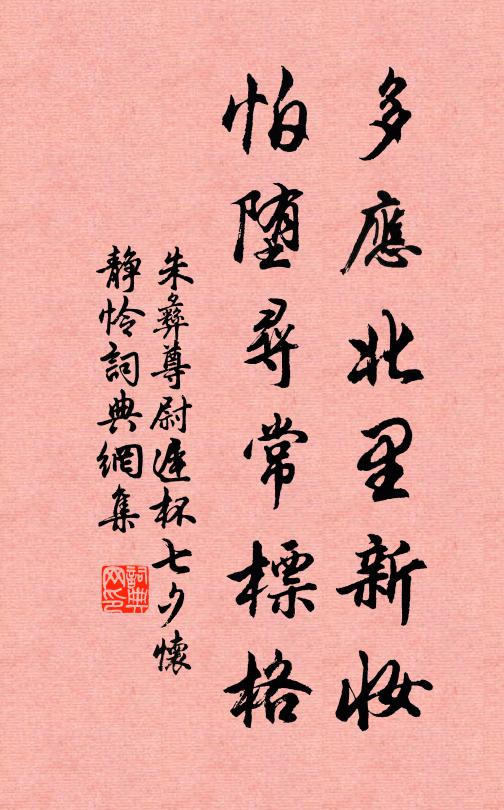 多應北里新妝
怕墮尋常標格
朱彝尊尉遲杯七夕懷
靜怜詞典網集
詞典網印